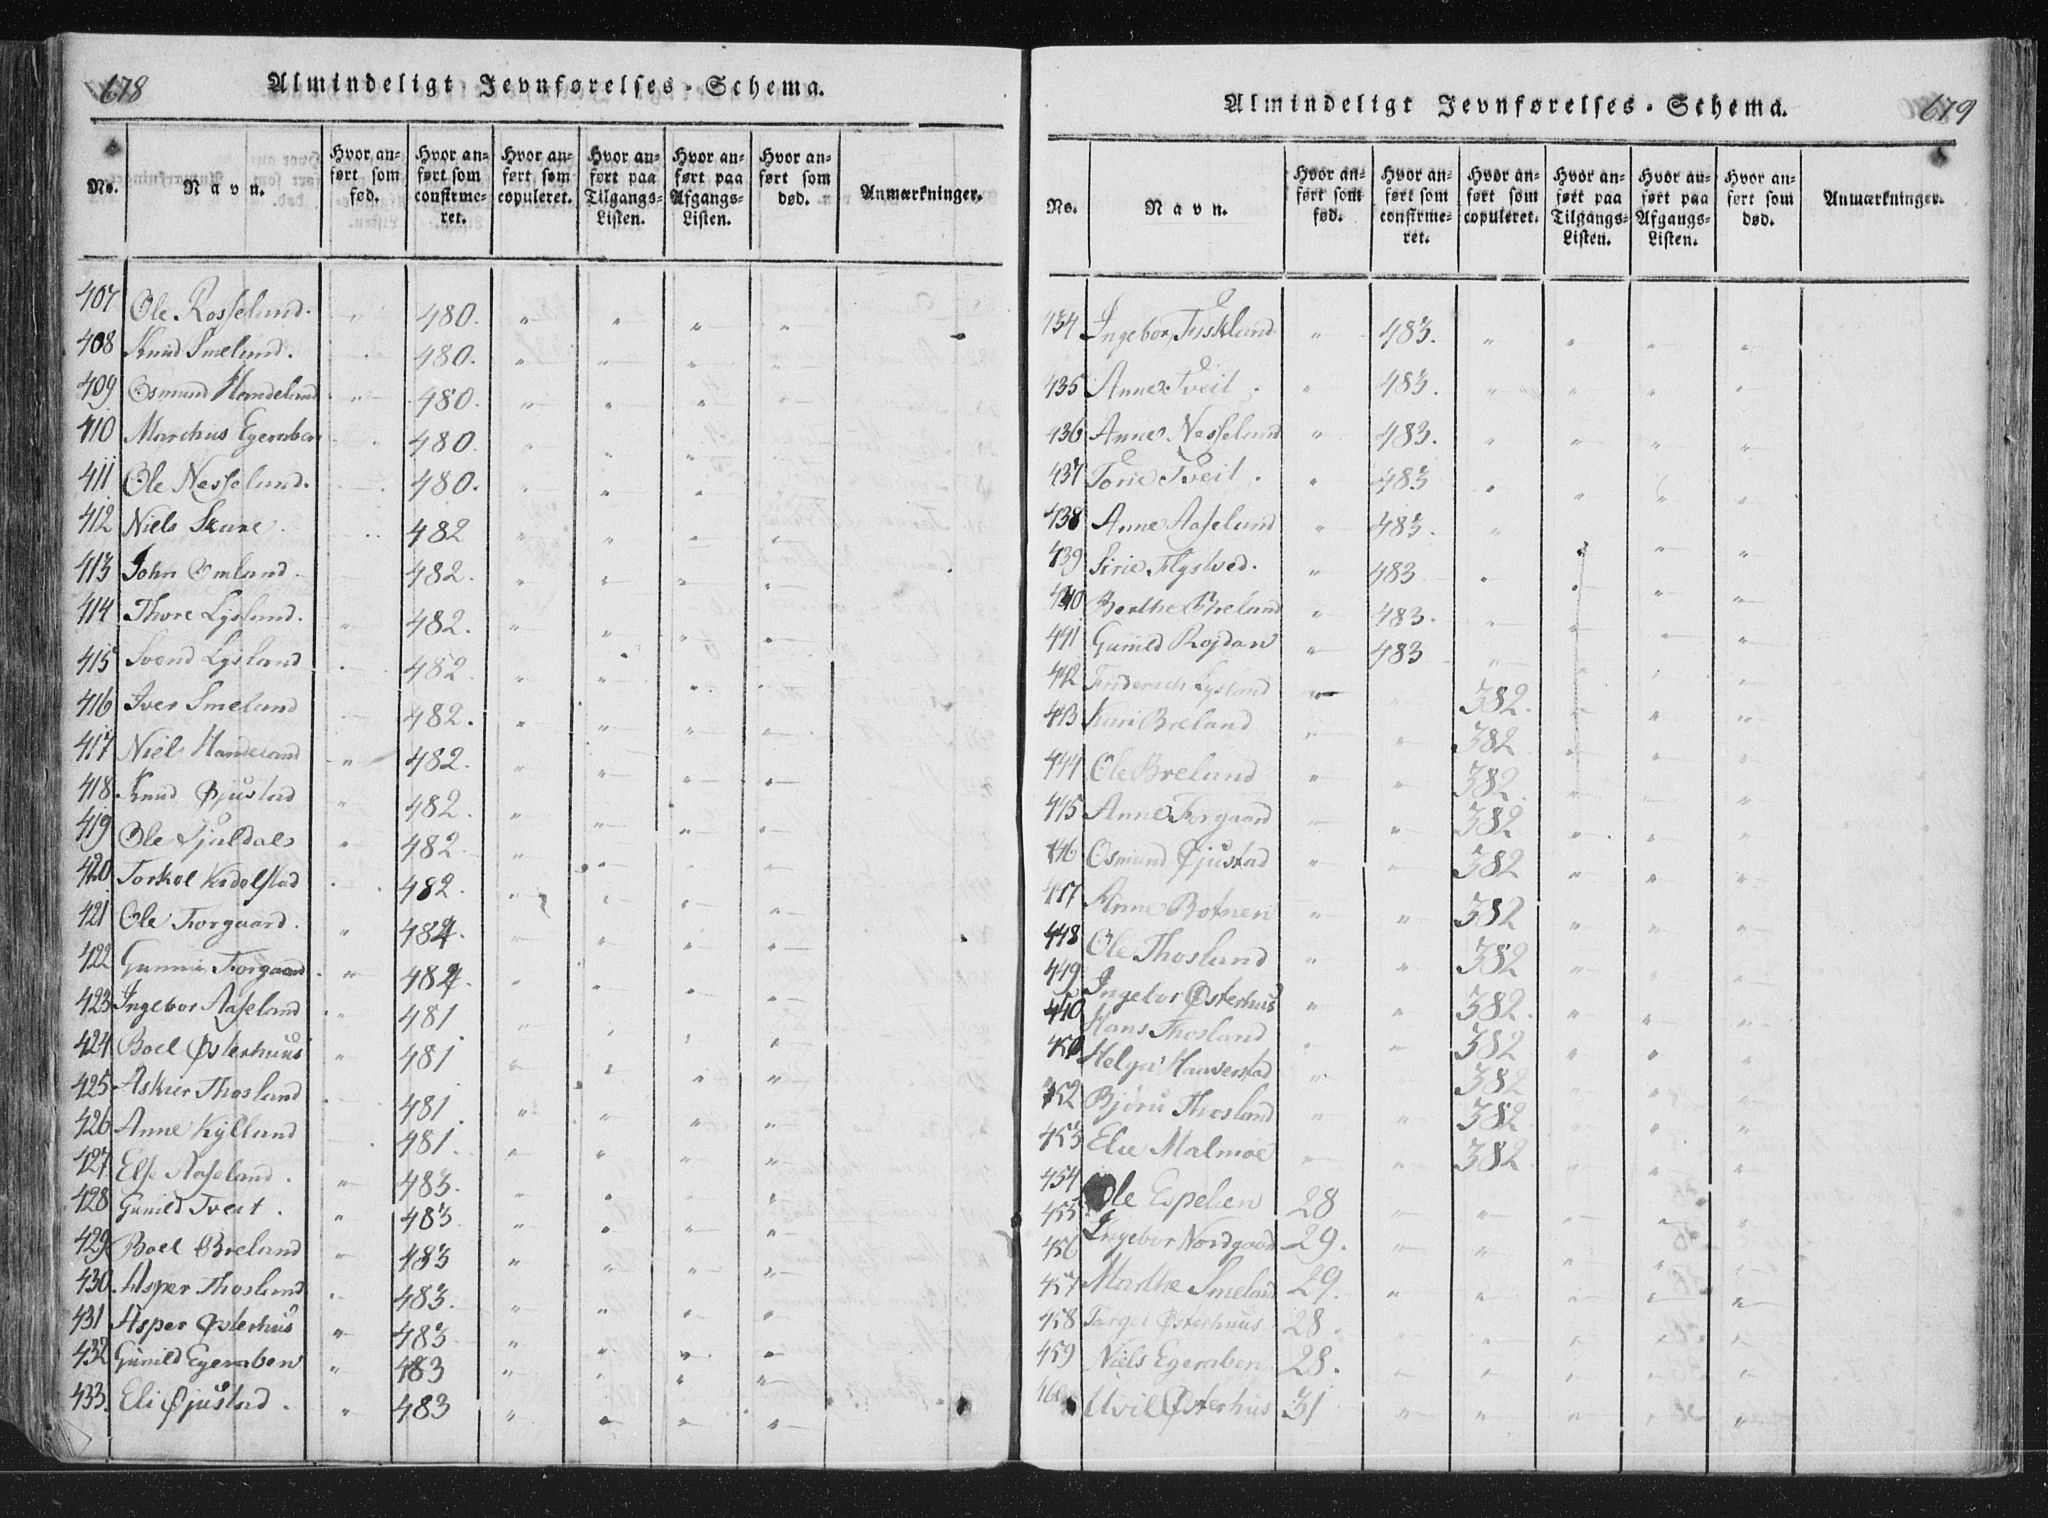 678
Almindeligt Jevnførelses-Schema.
No. Navn. Hvor anført som fød. Hvor anført som confirmeret. Hvor anført som copuleret. Hvor anført paa Tilgangs-Listen. Hvor anført paa Afgangs-Listen. Hvor anført som død. Anmærkninger.
407 Ole Rosseland. " 480. " " " "
408 Knud Smeland. 480. " " " "
409 Osmund Handeland " 480. " " " "
410 Marchus Egeraben 480. " " " "
411 Ole Nesseland. 480. " " " "
412 Niels Skare. 482 " " " "
413 John Omland. 482. " " " "
414 Thore Lysland. " 482. " " " "
415 Svend Lysland 482. " " " "
416 Iver Smeland 482. " " " "
417 Niels Handeland " 482. " " " "
418 Knud Øjustad " 482. " " " "
419 Ole " 482. " " " "
420 Torkel 482. " " " "
421 Ole Forgaard. " 482. " " " "
422 Gunni Forgaard. " 482. " " " "
423 Ingebor Aaseland " 481 " " " "
424 Boel Østerhuus " 481 " " " "
425 Askier Thosland 481. " " " "
426 Anne Kylland 481. " " " "
427 Else Aaseland. " 483. " " " "
428 Gunild Tveit. " 483. " " " "
429 Boel Breland " 483 " " " "
430 Asper Thosland 483. " " " "
431 Asper Østerhus " 483. " " " "
432 Gunild Egeraben " 483 " " " "
433. Eli Øjustad. " 483 " " " "
679
Almindeligt Jevnførelses-Schema.
No. Navn. Hvor anført som fød. Hvor anført som confirmeret. Hvor anført som copuleret. Hvor anført paa Tilgangs-Listen. Hvor anført paa Afgangs-Listen. Hvor anført som død. Anmærkninger.
434 Ingebor Fuskland " 483. " " " "
435 Anne Tveit. " 483. " " " "
436 Anne Nesseland " 483. " " " "
437 Torie Tveit. " 483 " " " "
438 Anne Aaseland " 483. " " " "
439 Sirie Flystved. " 483 " " " "
440 Berthe Breland " 483. " " " "
441 Gunild Rojdan " 483 " " " "
442 Friderich Lysland " 382. " " "
443 Kari Breland " " 382 " " "
444 Ole Breland " " 382. " " "
445 Anne Forgaard " " 382 " " "
446 Osmund Øjustad " " 382 " " "
447 Anne Botnen " " 382 " " "
448 Ole Thosland " " 382 " " "
449 Ingebor Østerhus " " 382. " " "
440 Hans Thosland " " 382 " " "
450 Helga Haaverstad " " 382 " " "
452 Bjørn Thosland " " 382. " " "
453 Elie Malmoe " " 382 " " "
454 Ole Espelien 28 " " " " "
455 Ingebor Nordgaard 29. " " " " "
456
457 Marthe Smeland 29. " " " " "
458 Targei Østerhuus 28. " " " " "
459 Niels Egeraben 28. " " " " "
460 Østerhus 31 " " " " "